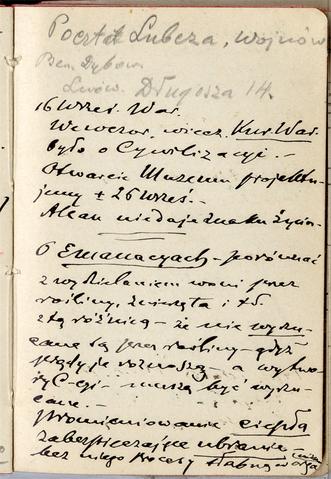 Poczta Lubcza, Wojnów
Ben. Dybow
Lwów. Długosza 14.
16 Wrześ. War.
Wcwoczor. wiecz. Kur. War.
było o Cywilizacyi. —
Otwarcie Muzeum projektu-
jemy ± 26 Wrześ. —
Alcan nie daje znaku życia. —
O Emanacyach — porównać
z wydzielaniem woni przez
rośliny, zwierzęta i td.
z tą różnicą — że nie wyrzu-
cane są przez rośliny — gdyż
prądy je roznoszą — a wytwo-
ry C-cyi — muszą być wyrzu-
cane. —
Promieniowanie ciepła
zabezpieczające ubranie
bez niego procesy